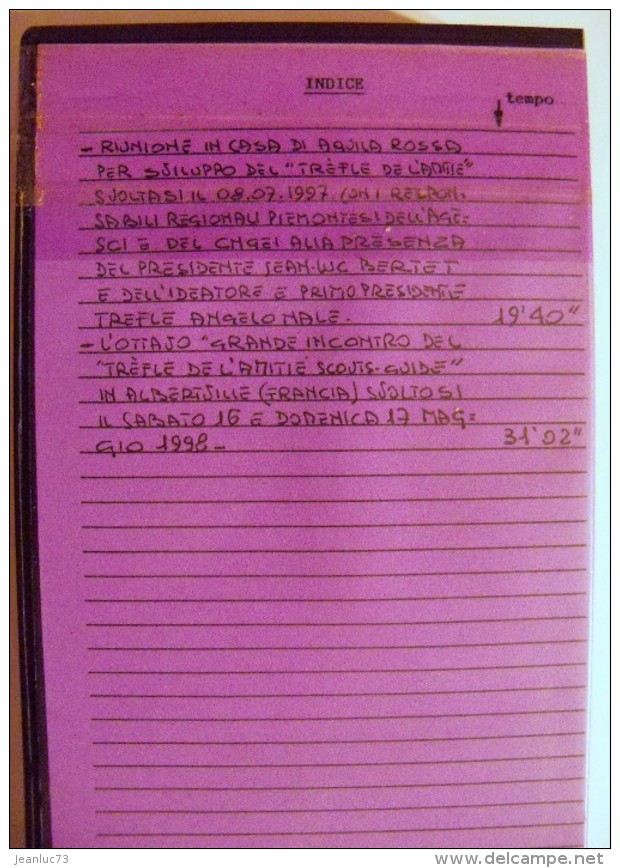 INDICE
tempo
- RIUNIONE IN CASA DI AQUILA ROSSA
PER SVILUPPO DEL "TRÈFLE DE L'AMITIE"
SVOLTASI IL 08.07.1997 CON I RESPON=
SABILI REGIONALI PIEMONTESI DELL'AGE=
SCI E DEL CNGEI ALLA PRESENZA
DEL PRESIDENTE JEAN-LUC BERTET
E DELL'IDEATORE E PRIMO PRESIDENTE
TREFLE ANGELO NALE. 19'40"
- L'OTTAVO "GRANDE INCONTRO DEL
"TRÈFLE DE L'AMITIÉ SCOUTS-GUIDE"
IN ALBERTVILLE (FRANCIA) SVOLTOSI
IL SABATO 16 E DOMENICA 17 MAG=
GIO 1998 - 31'02"
jeanluc73
www.delcampe.net